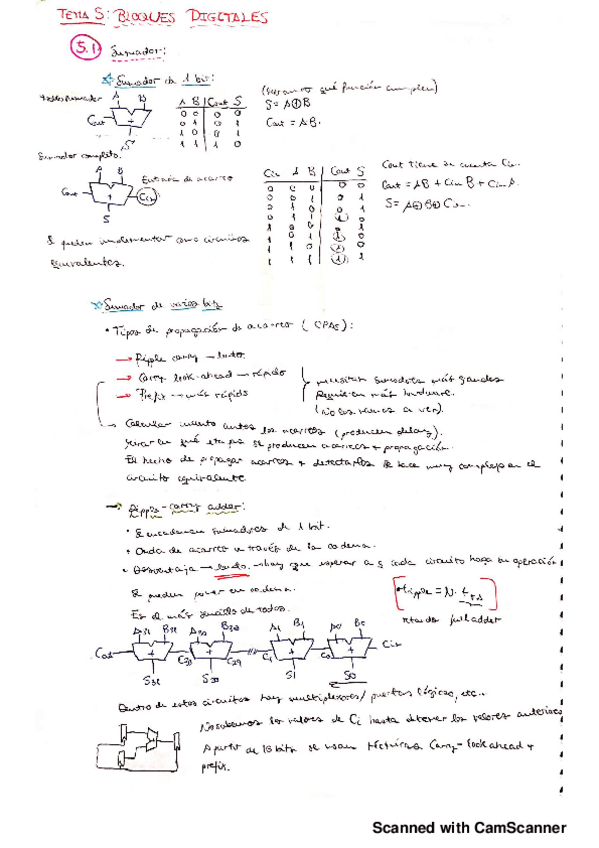 TEMA 5: BLOQUES DIGITALES
5.1 Sumador:
* Sumador de 1 bit:
A B
Cout + S
A B | Cout S
0 0 0 0
0 1 0 1
1 0 0 1
1 1 1 0
S = A⊕B
Cout = AB.
Sumador completo.
A B
Cout + Cin
S
Entrada de acarreo
Cin A B | Cout S
0 0 0 0 0
0 0 1 0 1
0 1 0 0 1
0 1 1 1 0
1 0 0 0 1
1 0 1 1 0
1 1 0 1 0
1 1 1 1 1
Cout tiene en cuenta Cin.
Cout = AB + Cin B + Cin A.
S = A⊕B⊕Cin.
Se pueden implementar como circuitos
equivalentes.
* Sumador de varios bits
• Tipos de propagación de acarreo (CPAs):
→ Ripple carry → lento.
→ Carry look-ahead → rápido
→ Prefix → más rápido
necesitan sumadores más grandes
Requieren más hardware.
(No los vamos a ver).
→ Calcular cuanto antes los acarreos (producen delay).
en qué etapas se producen acarreos + propagación.
El hecho de propagar acarreos + detectarlos se hace muy complejo en el
circuito equivalente
→ Ripple-carry adder:
• Se encadenan sumadores de 1 bit.
• Onda de acarreo a través de la cadena.
• Desventaja → lento. → hay que esperar a q cada circuito haga su operación
Se pueden poner en cadena.
Es el más sencillo de todos.
tripple = N · tFA
retardo full adder
A31 B31 A30 B30 A1 B1 A0 B0
Cout + C30 + C29 C1 + C0 + Cin
S31 S30 S1 S0
Dentro de estos circuitos hay multiplexores / puertas lógicas, etc..
No sabemos los valores de Ci hasta obtener los valores anteriores
A partir de 16 bits se usan técnicas Carry-look ahead +
prefix.
Scanned with CamScanner